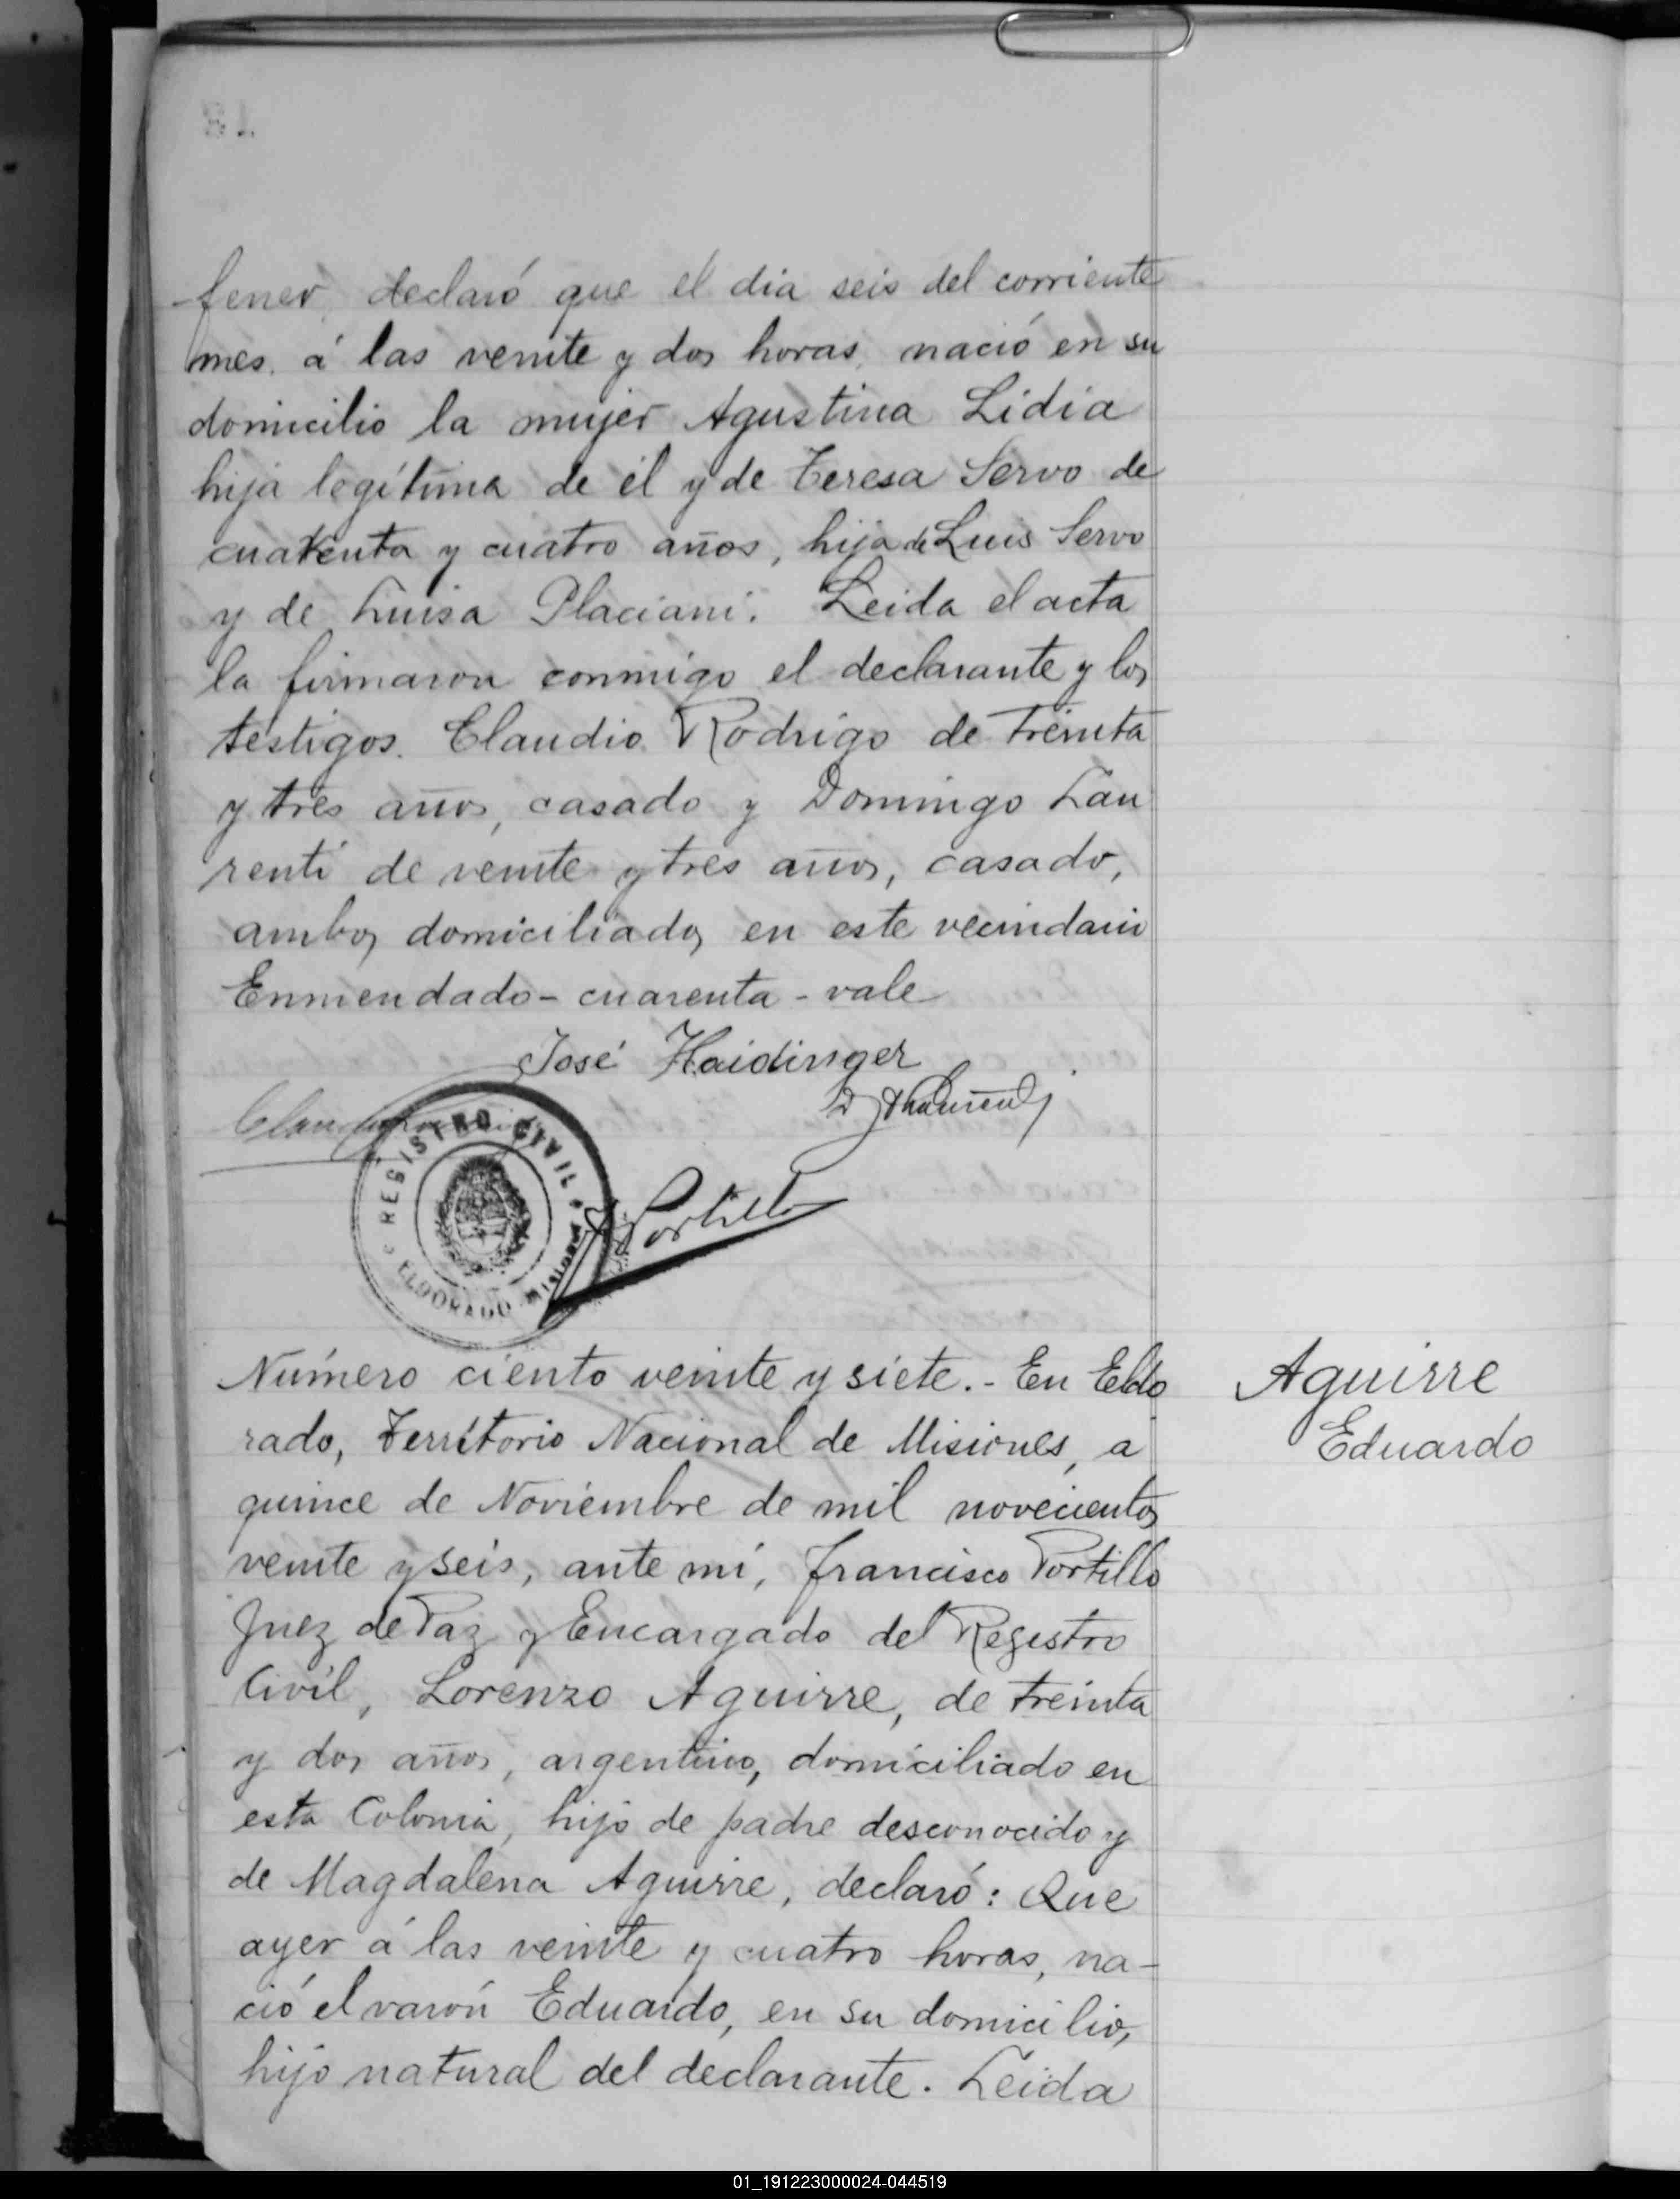 fener, declaró que el dia seis del corriente
mes, á las veinte y dos horas, nació en su
domicilio la mujer Agustina Lidia
hija legítima de él y de Teresa Servo de
cuarenta y cuatro años, hija de Luis Servo
y de Luisa Placiani. Leida el acta
la firmaron conmigo el declarante y los
testigos. Claudio Rodrigo de treinta
y tres años, casado y Domingo Lau
renti de veinte y tres años, casado,
ambos domiciliados en este vecindario
Enmendado - cuarenta - vale
José Haidinger
REGISTRO CIVIL
ELDORADO Misiones
Portillo
Número ciento veinte y siete. - En Eldo
rado, Territorio Nacional de Misiones, a
quince de Noviembre de mil novecientos
veinte y seis, ante mí, Francisco Portillo
Juez de Paz y Encargado del Registro
Civil, Lorenzo Aguirre, de treinta
y dos años, argentino, domiciliado en
esta Colonia, hijo de padre desconocido y
de Magdalena Aguirre, declaró: Que
ayer á las veinte y cuatro horas, na-
ció el varón Eduardo, en su domicilio,
hijo natural del declarante. Leida
Aguirre
Eduardo
01_191223000024-044519